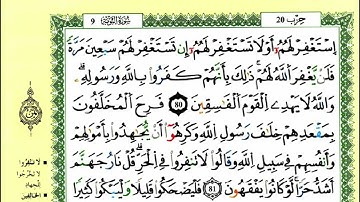 حِزْب 20
سُورَةُ التَّوْبَةِ 9
اِسْتَغْفِرْ لَهُمُۥٓ أَوْ لَا تَسْتَغْفِرْ لَهُمُۥٓ إِن تَسْتَغْفِرْ لَهُمْ سَبْعِينَ مَرَّةً
فَلَنْ يَّغْفِرَ اَللَّهُ لَهُمْ ذَٰلِكَ بِأَنَّهُمْ كَفَرُواْ بِاللَّهِ وَرَسُولِهِۦ
وَاللَّهُ لَا يَهْدِي اِلْقَوْمَ اَلْفَٰسِقِينَ 80 فَرِحَ اَلْمُخَلَّفُونَ
بِمَقْعَدِهِمْ خِلَٰفَ رَسُولِ اِللَّهِ وَكَرِهُوٓاْ أَنْ يُّجَٰهِدُواْ بِأَمْوَٰلِهِمْ
وَأَنفُسِهِمْ فِي سَبِيلِ اِللَّهِ وَقَالُواْ لَا تَنفِرُواْ فِي اِلْحَرِّ قُلْ نَارُ جَهَنَّمَ
أَشَدُّ حَرّاً لَّوْ كَانُواْ يَفْقَهُونَ 81 فَلْيَضْحَكُواْ قَلِيلاً وَلْيَبْكُواْ كَثِيراً
لا تنفروا
لا تخرجوا
للجهاد
الخالفين